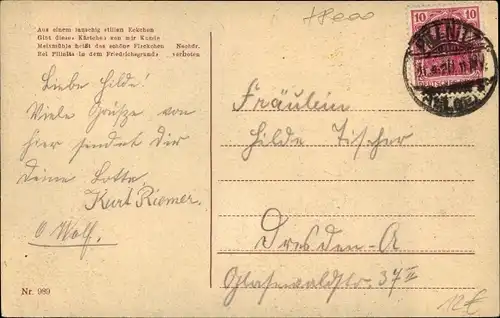 Aus einem lauschig stillen Eckchen
Gibt dieses Kärtchen von mir Kunde
Meixmühle heißt das schöne Fleckchen Nachdr.
Bei Pillnitz in dem Friedrichsgrunde verboten
10 10
Liebe Hilde!
Viele Grüsze von
hier sendet Dir
Deine Lotte.
Kurt Riemer.
O Wolf.
Nr. 989
Fräulein
Hilde Tischer
Dresden-A
37 II
12€